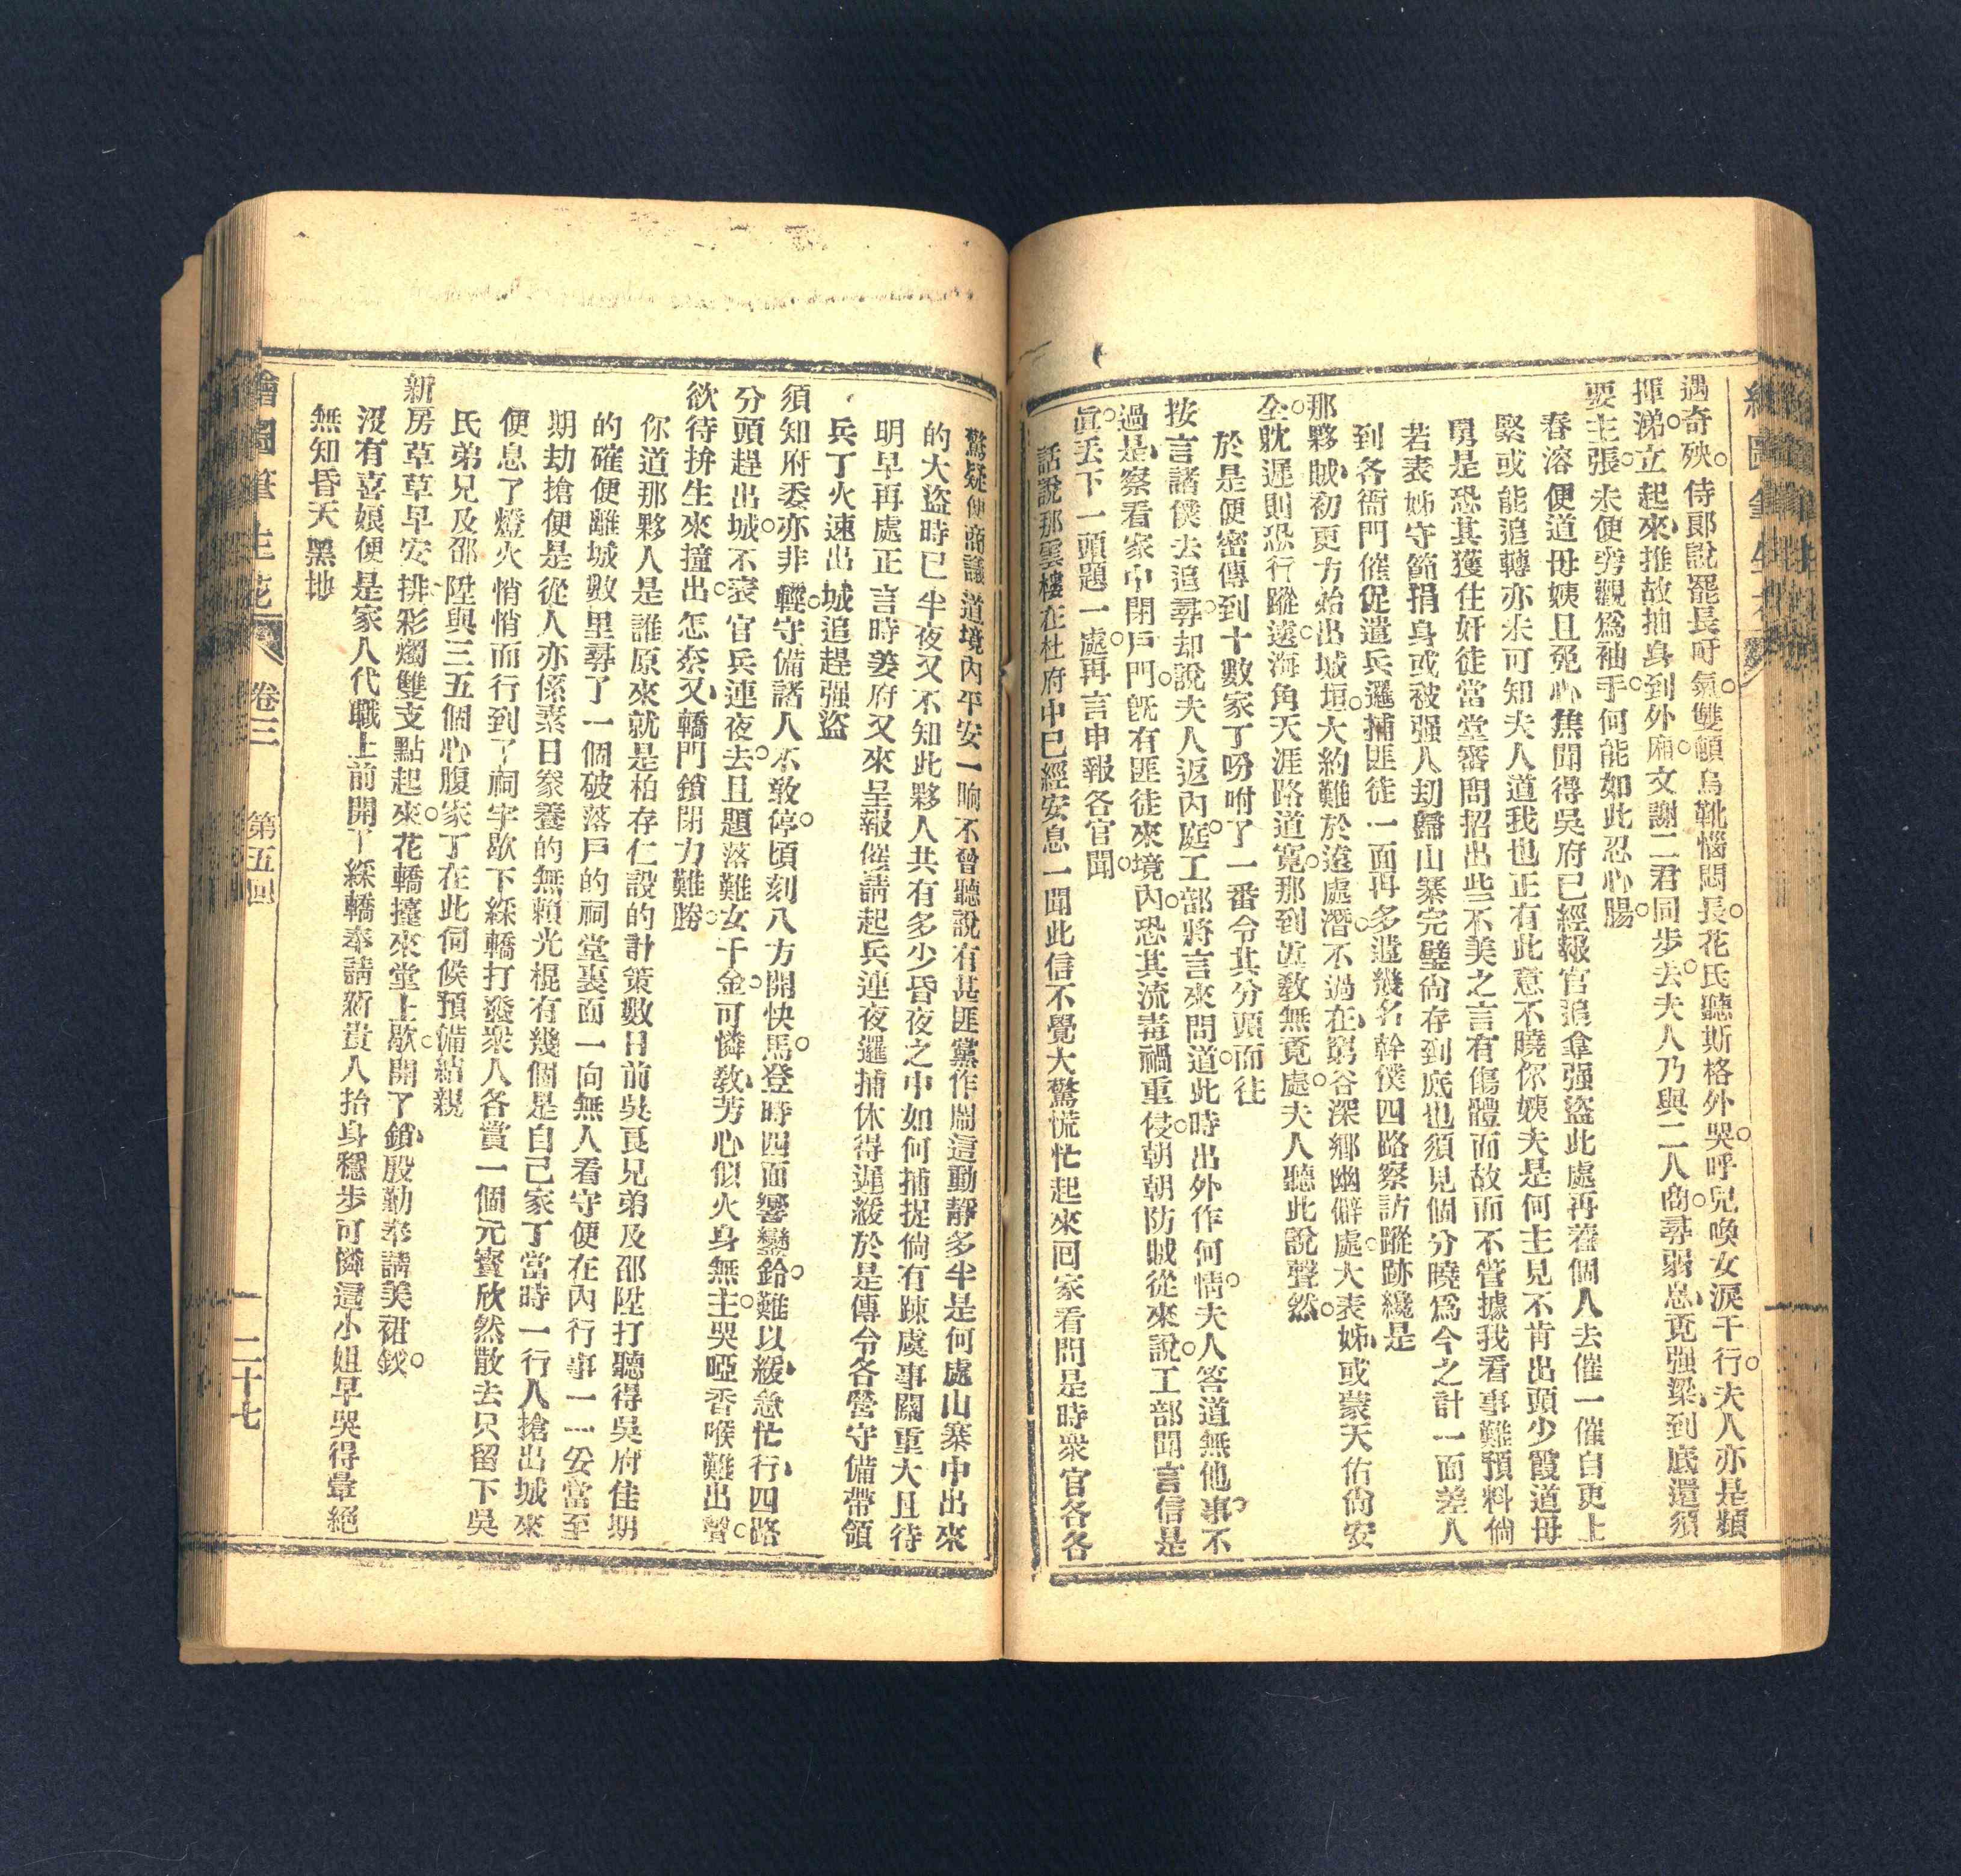 遇奇殃。侍郎說罷長吁氣。雙頓烏靴惱悶長。花氏聽斯格外哭。呼兒喚女淚千行。夫人亦是頻
揮涕。立起來推故抽身到外廂。文謝二君同步去。夫人乃與二人商。尋弱息竟强梁到底還須
要主張。未便旁觀爲袖手。何能如此忍心腸。
春溶便道母姨且免心焦聞得吳府已經報官追拿强盜此處再着個人去催一催自更上
緊或能追轉亦未可知夫人道我也正有此意不曉你姨夫是何主見不肯出頭少霞道母
舅是恐其獲住奸徒當堂審問招出些不美之言有傷體面故而不管據我看事難預料倘
若表姊守節捐身或被强人刧歸山寨完璧尙存到底也須見個分曉爲今之計一面差人
到各衙門催促遣兵邏捕匪徒一面再多遣幾名幹僕四路察訪蹤跡纔是
那夥賊初更方始出城垣。大約難於遠處潛。不過在窮谷深鄉幽僻處。大表姊或蒙天佑尙安
全。躭遲則恐行蹤遠。海角天涯路道寬。那到並敎無覓處。夫人聽此說聲然。
於是便密傳到十數家丁吩咐了一番令其分頭而往
按言諸僕去追尋。却說夫人返內庭。工部將言來問道。此時出外作何情。夫人答道無他事。不
過是察看家中閉戶門。旣有匪徒來境內。恐其流毒禍重侵。朝朝防賊從來說。工部聞言信是
眞。丟下一頭題一處。再言申報各官聞。
話說那雲樓在杜府中已經安息一聞此信不覺大驚慌忙起來回家看問是時衆官各各
驚疑便商議道境內平安一晌不曾聽說有甚匪黨作鬧這動靜多半是何處山寨中出來
的大盜時已半夜又不知此夥人共有多少昏夜之中如何捕捉倘有踈虞事關重大且待
明早再處正言時姜府又來呈報催請起兵連夜邏捕休得遲緩於是傳令各營守備帶領
兵丁火速出城追趕强盜
須知府委亦非輕。守備諸人不敢停。頃刻八方開快馬。登時四面響鑾鈴。難以緩急忙行四路
分頭趕出城。不表官兵連夜去。且題落難女千金。可憐敎芳心似火身無主。哭啞香喉難出聲。
欲待拚生來撞出。怎奈又轎門鎖閉力難勝。
你道那夥人是誰原來就是柏存仁設的計策數日前吳良兄弟及邵陞打聽得吳府佳期
的確便離城數里尋了一個破落戶的祠堂裏面一向無人看守便在內行事一一妥當至
期刧搶便是從人亦係素日豢養的無賴光棍有幾個是自己家丁當時一行人搶出城來
便息了燈火悄悄而行到了祠宇歇下綵轎打發衆人各賞一個元寶欣然散去只留下吳
氏弟兄及邵陞與三五個心腹家丁在此伺候預備結親
新房草草早安排。彩燭雙支點起來。花轎擡來堂上歇。開了鎖殷勤奉請美裙釵。
沒有喜娘便是家人代職上前開了綵轎奉請新貴人抬身穩步可憐這小姐早哭得暈絕
無知昏天黑地
繪圖筆生花 卷三 第五回 二十七